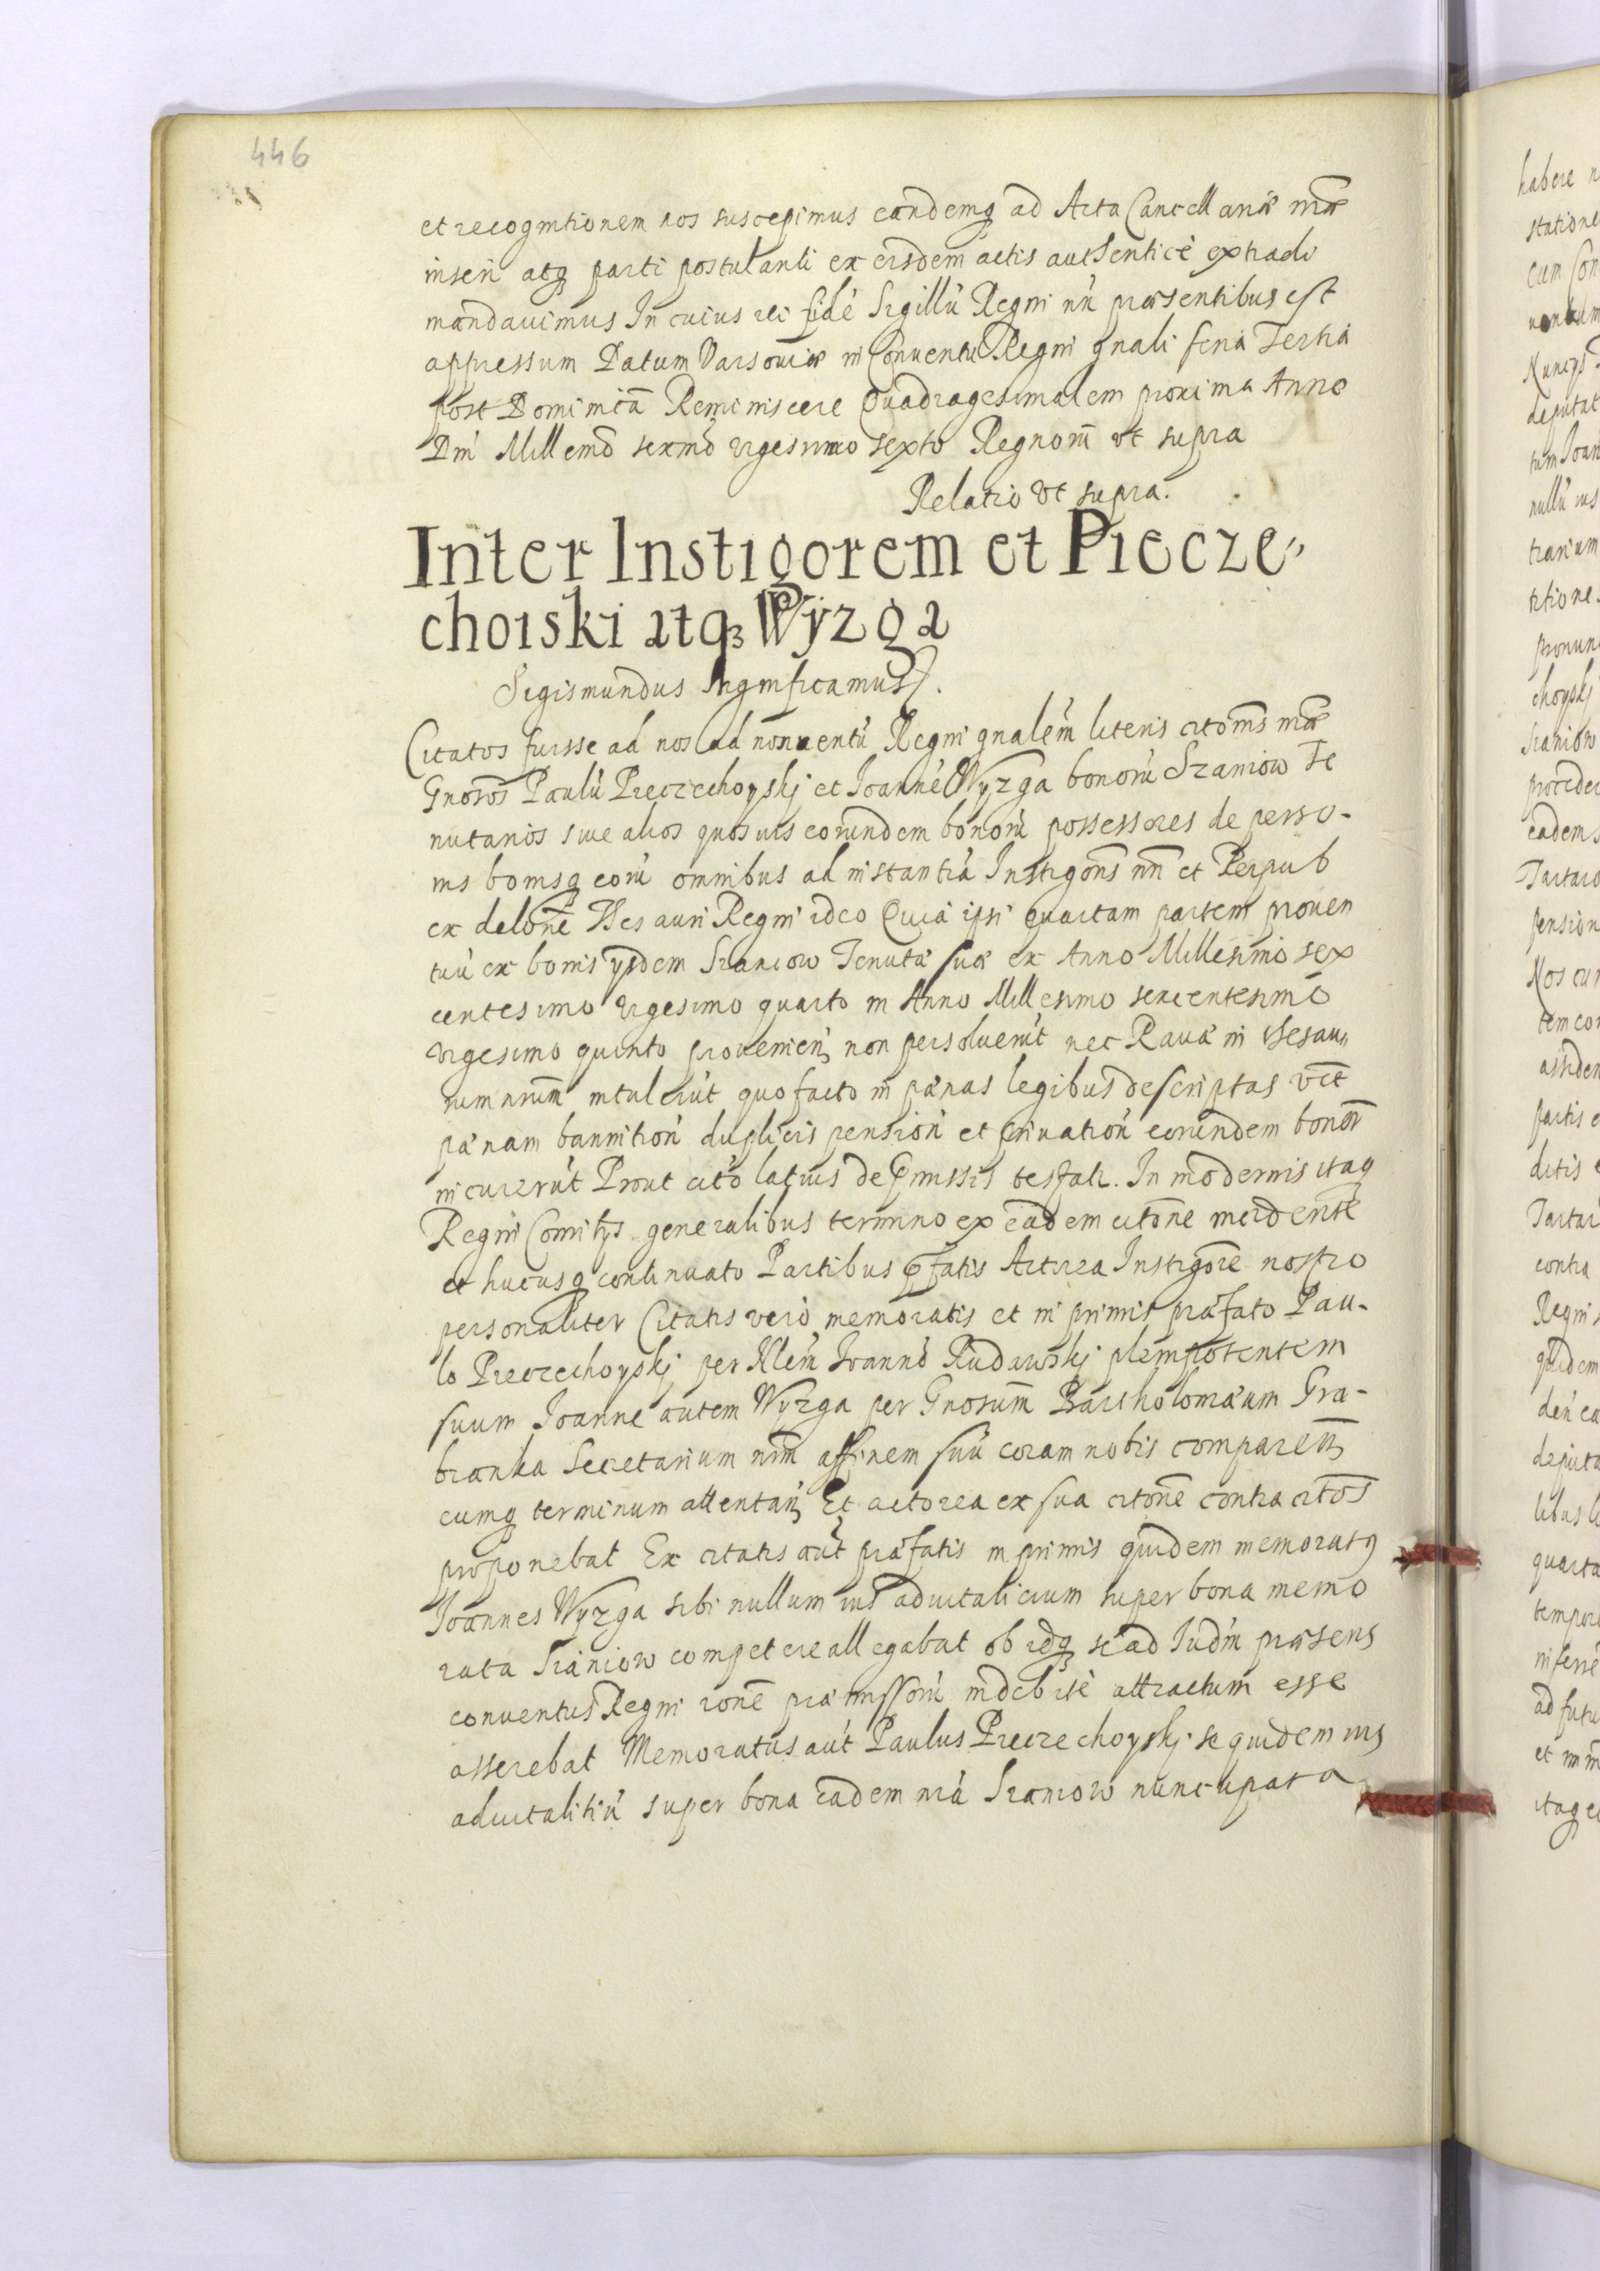 446
et recognitionem nos suscepimus eandemq ad Acta Cancellariæ nr̃æ
inseri atq parti postulanti ex eisdem actis authenticè extradi
mandauimus In cuius rei fidẽ Sigillũ Regni nr̃ũ præsentibus est
appressum Datum Varsouiæ in Conuentu Regni gnali feria Tertia
post Dominicã Reminiscere Quadragesimalem proxima Anno
Dnĩ Millemõ sexmõ vigesimo sexto Regnorũ vt supra
Relatio vt supra.
Inter Instigorem et Piecze„
choiski atqз Wÿzga
Sigismundus Significamus
Citatos fuisse ad nos ad nonuentũ Regni gnalem̃ literis citoñis nr̃æ
Gnosos Paulũ Pieczechoyskj et Ioannẽ Wyzga bonorũ Szaniow Te
nutarios siue alios quosuis eorundem bonorũ possessores de perso-
nis bonisq eorũ omnibus ad instantiã Instigoris nr̃i et Reipub
ex delone Thesauri Regni ideo Quia ipsi quartam partem prouen
tuũ ex bonis ysdem Szaniow Tenutæ suæ ex Anno Millesimo sex
centesimo vigesimo quarto in Anno Millesimo sexcentesimo
vigesimo quinto prouenien non persoluerũt nec Rauæ in thesau„
rum nrum̃ intulerũt quo facto in pænas legibus descriptas vĩ́ct
pænam bannition̄ duplicis pension̄ et priuation̄ eorundem bonorũ
incurerũt Prout citõ latius de p̃missis testatr. In modernis itaq
Regni Comitys generalibus termino ex eadem citone incidente
et hucusq continuato Partibus p̃fatis Actorea Instigore nostro
personaliter Citatis verò memoratis et in primis præfato Pau-
lo Pieczechoyskj per Nlem̃ Ioannẽ Rudawskj plenipotentem
suum Ioanne autem Wyzga per Gnosum̃ Bartholomæum Gra-
bianka Secretarium nrm̃ affinem suũ coram nobis comparen̄
eumq terminum attentan̄ Et actorea ex sua citone contra citõs
proponebat Ex citatis aũt præfatis in primis quidem memoratꝰ
Ioannes Wyzga sibi nullum ius aduitalicium super bona memo
rata Szaniow competere allegabat ob idq se ad Iudm̃ præsens
conuentus Regni rone præmissorũ indebitè attractum esse
asserebat Memoratus aũt Paulus Pieczechoyskj se quidem ius
aduitalitiũ super bona eadem nr̃a Szaniow nuncupata